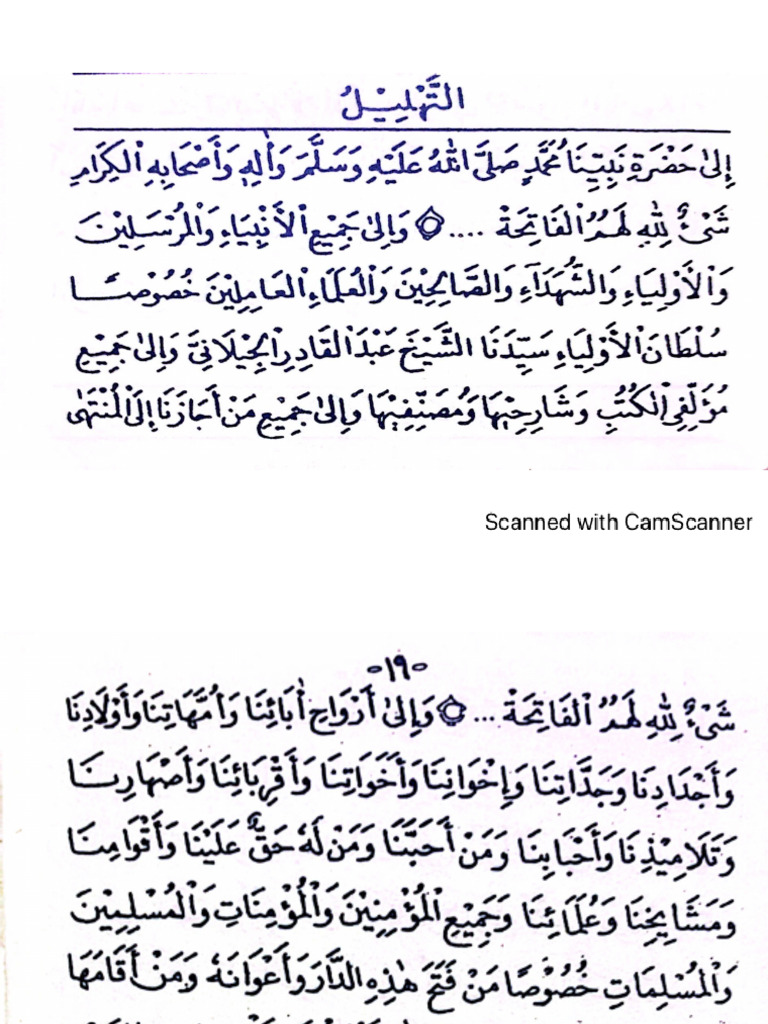 التَّهْلِيْلُ
إِلىٰ حَضْرَةِ نَبِيِّنَا مُحَمَّدٍ صَلَّى اللهُ عَلَيْهِ وَسَلَّمَ وَاٰلِهٖ وَأَصْحَابِهِ الْكِرَامِ
شَيْءٌ لِلّٰهِ لَهُمُ الْفَاتِحَةْ .... ۞ وَإِلىٰ جَمِيْعِ الْأَنْبِيَاءِ وَالْمُرْسَلِيْنَ
وَالْأَوْلِيَاءِ وَالشُّهَدَآءِ وَالصَّالِحِيْنَ وَالْعُلَمَاءِ الْعَامِلِيْنَ خُصُوْصًا
سُلْطَانَ الْأَوْلِيَاءِ سَيِّدَنَا الشَّيْخَ عَبْدَ الْقَادِرِ الْجِيْلَانِيَّ وَإِلىٰ جَمِيْعِ
مُؤَلِّفِي الْكُتُبِ وَشَارِحِيْهَا وَمُصَنِّفِيْهَا وَإِلىٰ جَمِيْعِ مَنْ أَجَازَنَا إِلَى الْمُنْتَهٰى
Scanned with CamScanner
-١٩-
شَيْءٌ لِلّٰهِ لَهُمُ الْفَاتِحَةْ ... ۞ وَإِلىٰ أَرْوَاحِ اٰبَائِنَا وَأُمَّهَاتِنَا وَأَوْلَادِنَا
وَأَجْدَادِنَا وَجَدَّاتِنَا وَإِخْوَانِنَا وَأَخَوَاتِنَا وَأَقْرِبَائِنَا وَأَصْهَارِنَا
وَتَلَامِيْذِنَا وَأَحْبَابِنَا وَمَنْ أَحَبَّنَا وَمَنْ لَهٗ حَقٌّ عَلَيْنَا وَأَقْوَامِنَا
وَمَشَايِخِنَا وَعُلَمَائِنَا وَجَمِيْعِ الْمُؤْمِنِيْنَ وَالْمُؤْمِنَاتِ وَالْمُسْلِمِيْنَ
وَالْمُسْلِمَاتِ خُصُوْصًا مَنْ فَتَحَ هٰذِهِ الدَّارَ وَأَعْوَانَهٗ وَمَنْ أَقَامَهَا